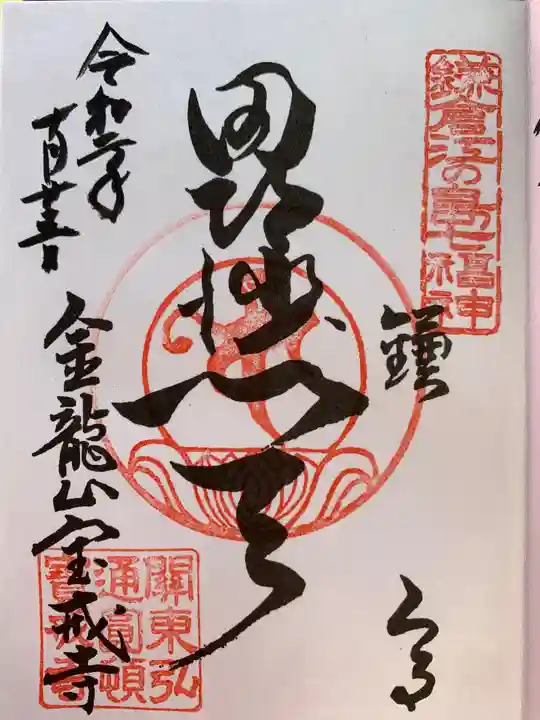 鎌倉江の島七福神
鎌
倉
毘沙門天
令和二年
十月廿三日
金龍山宝戒寺
關東弘
通圓頓
寶戒寺